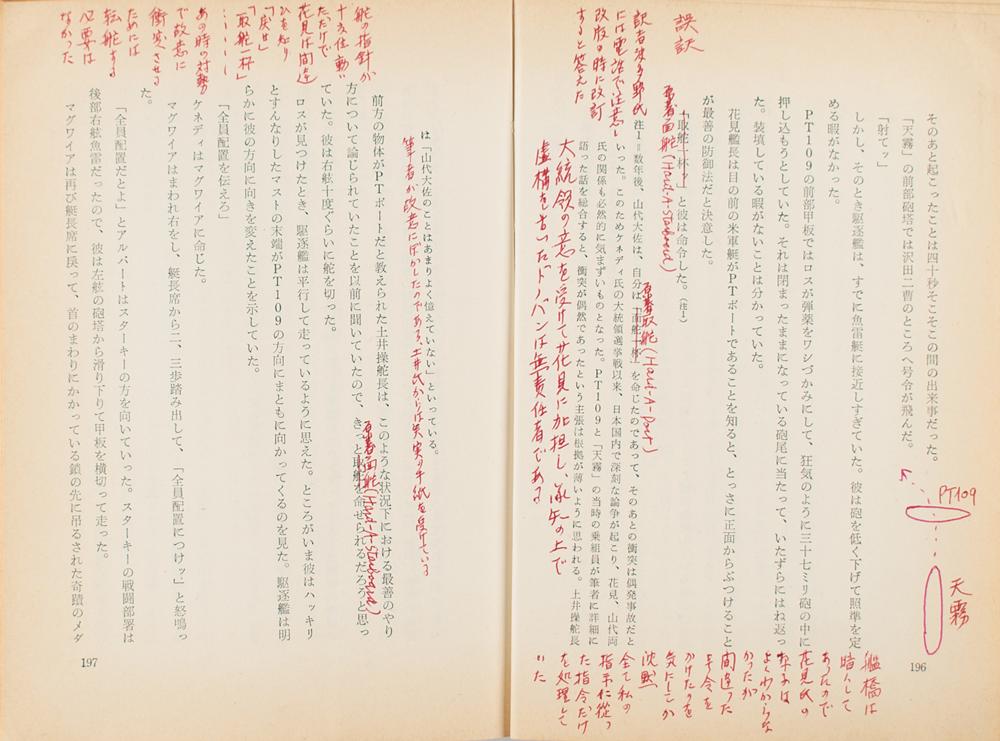 そのあと起こったことは四十秒そこそこの間の出来事だった。
「天霧」の前部砲塔では沢田二曹のところへ号令が飛んだ。
「射てッ」
しかし、そのとき駆逐艦は、すでに魚雷艇に接近しすぎていた。彼は砲を低く下げて照準を定
める暇がなかった。
PT109の前部甲板ではロスが弾薬をワシづかみにして、狂気のように三十七ミリ砲の中に
押し込もうとしていた。それは閉まったままになっている砲尾に当たって、いたずらにはね返っ
た。装填している暇がないことは分かっていた。
花見艦長は目の前の米軍艇がPTボートであることを知ると、とっさに正面からぶつけること
が最善の防御法だと決意した。
「取舵一杯ッ」と彼は命令した。(注1)
注1=数年後、山代大佐は、自分は「面舵一杯」を命じたのであって、そのあとの衝突は偶発事故だと
いった。このためケネディ氏の大統領選挙戦以来、日本国内で深刻な論争が起こり、花見、山代両
氏の関係も必然的に気まずいものとなった。PT109と「天霧」の当時の乗組員が筆者に詳細に
語った話を総合すると、衝突が偶然であったという主張は根拠が薄いように思われる。土井操舵長
PT109
天霧
誤訳
訳者波多野氏
には電話で注意し
改版の時に改訂
すると答えた
原書面舵(Hard-A-Starboard)
原書取舵(Hard-A-Port)
大統領の意を受けて花見に加担し、承知の上で
虚構を書いたドノバンは無責任者である
艦橋は
暗くして
あったので
花見氏の
様子は
よくわからな
かったが
間違った
号令を
かけたのを
気にしてか
沈黙
全て私の
指示に従っ
た指令だけ
を処理して
いた
196
は「山代大佐のことはあまりよく憶えていない」といっている。
筆者が故意にぼかしたのである、土井氏からは真実の手紙を受けている
前方の物体がPTボートだと教えられた土井操舵長は、このような状況下における最善のやり
方について論じられていたことを以前に聞いていたので、きっと取舵を命ぜられるだろうと思っ
ていた。彼は右舷十度ぐらいに舵を切った。
原書面舵(Hard-A-Starboard)
ロスが見つけたとき、駆逐艦は平行して走っているように思えた。ところがいま彼はハッキリ
とすんなりしたマストの末端がPT109の方向にまともに向かってくるのを見た。駆逐艦は明
らかに彼の方向に向きを変えたことを示していた。
「全員配置を伝えろ」
ケネディはマグワイアに命じた。
マグワイアはまわれ右をし、艇長席から二、三歩踏み出して、「全員配置につけッ」と怒鳴っ
た。
「全員配置だとよ」とアルバートはスターキーの方を向いていった。スターキーの戦闘部署は
後部右舷魚雷だったので、彼は左舷の砲塔から滑り下りて甲板を横切って走った。
マグワイアは再び艇長席に戻って、首のまわりにかかっている鎖の先に吊るされた奇蹟のメダ
舵の指針が
十度位動い
ただけで
花見は間違
ひを知り
「戻せ」
「取舵一杯」
あの時の対勢
で故意に
衝突させる
ためには
転舵する
必要は
なかった
197